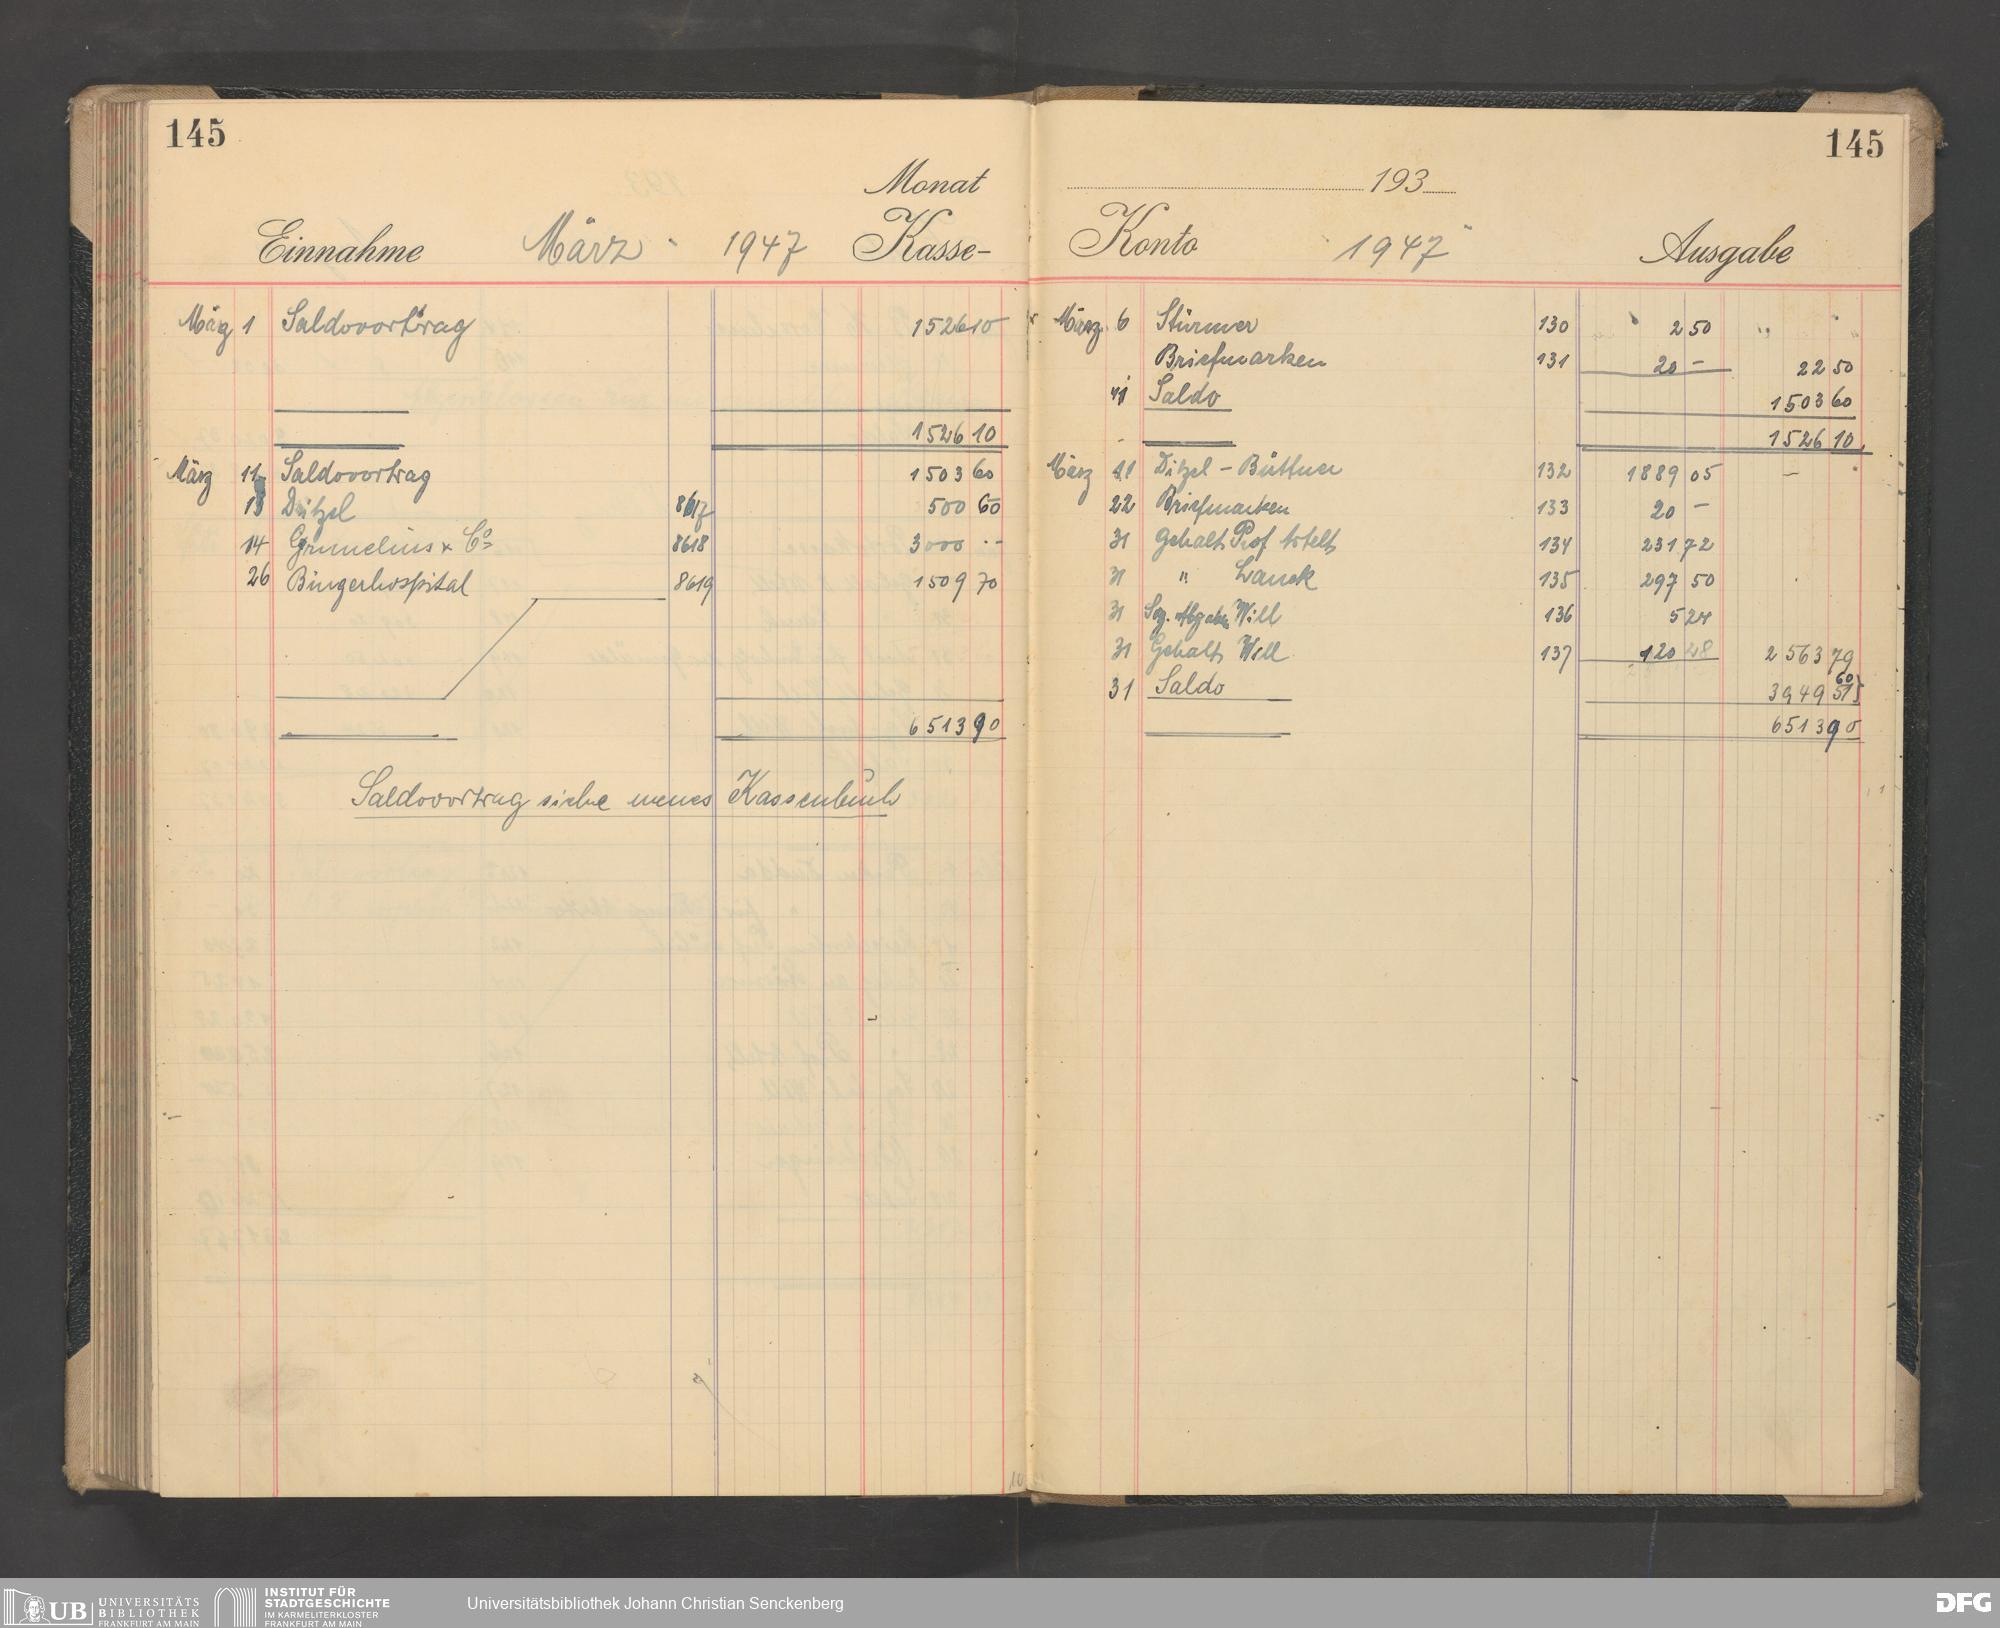 145
Monat
Einnahme März 1947 Kasse-
März 1 Saldovortrag 1526 10
1526 10
März 11 Saldovortrag 1503 60
13 Ditzel 8617 500 60
14 Grunelius & Co 8618 3000 --
26 Bürgerhospital 8619 1509 70
6513 90
Saldovortrag siehe neues Kassenbuch
145
193
Konto 1947 Ausgabe
März 6 Stürmer 130 2 50
Briefmarken 131 20 - 22 50
11 Saldo 1503 60
1526 10
März 11 Ditzel - Büttner 132 1889 05
22 Briefmarken 133 20 -
31 Gehalt Prof Artelt 134 231 72
31 " Lauck 135 297 50
31 Soz. Abgaben Will 136 5 24
31 Gehalt Will 137 120 28 2563 79
31 Saldo 3949 60
6513 90
UB UNIVERSITÄTS
BIBLIOTHEK
FRANKFURT AM MAIN
INSTITUT FÜR
STADTGESCHICHTE
IM KARMELITERKLOSTER
FRANKFURT AM MAIN
Universitätsbibliothek Johann Christian Senckenberg
DFG